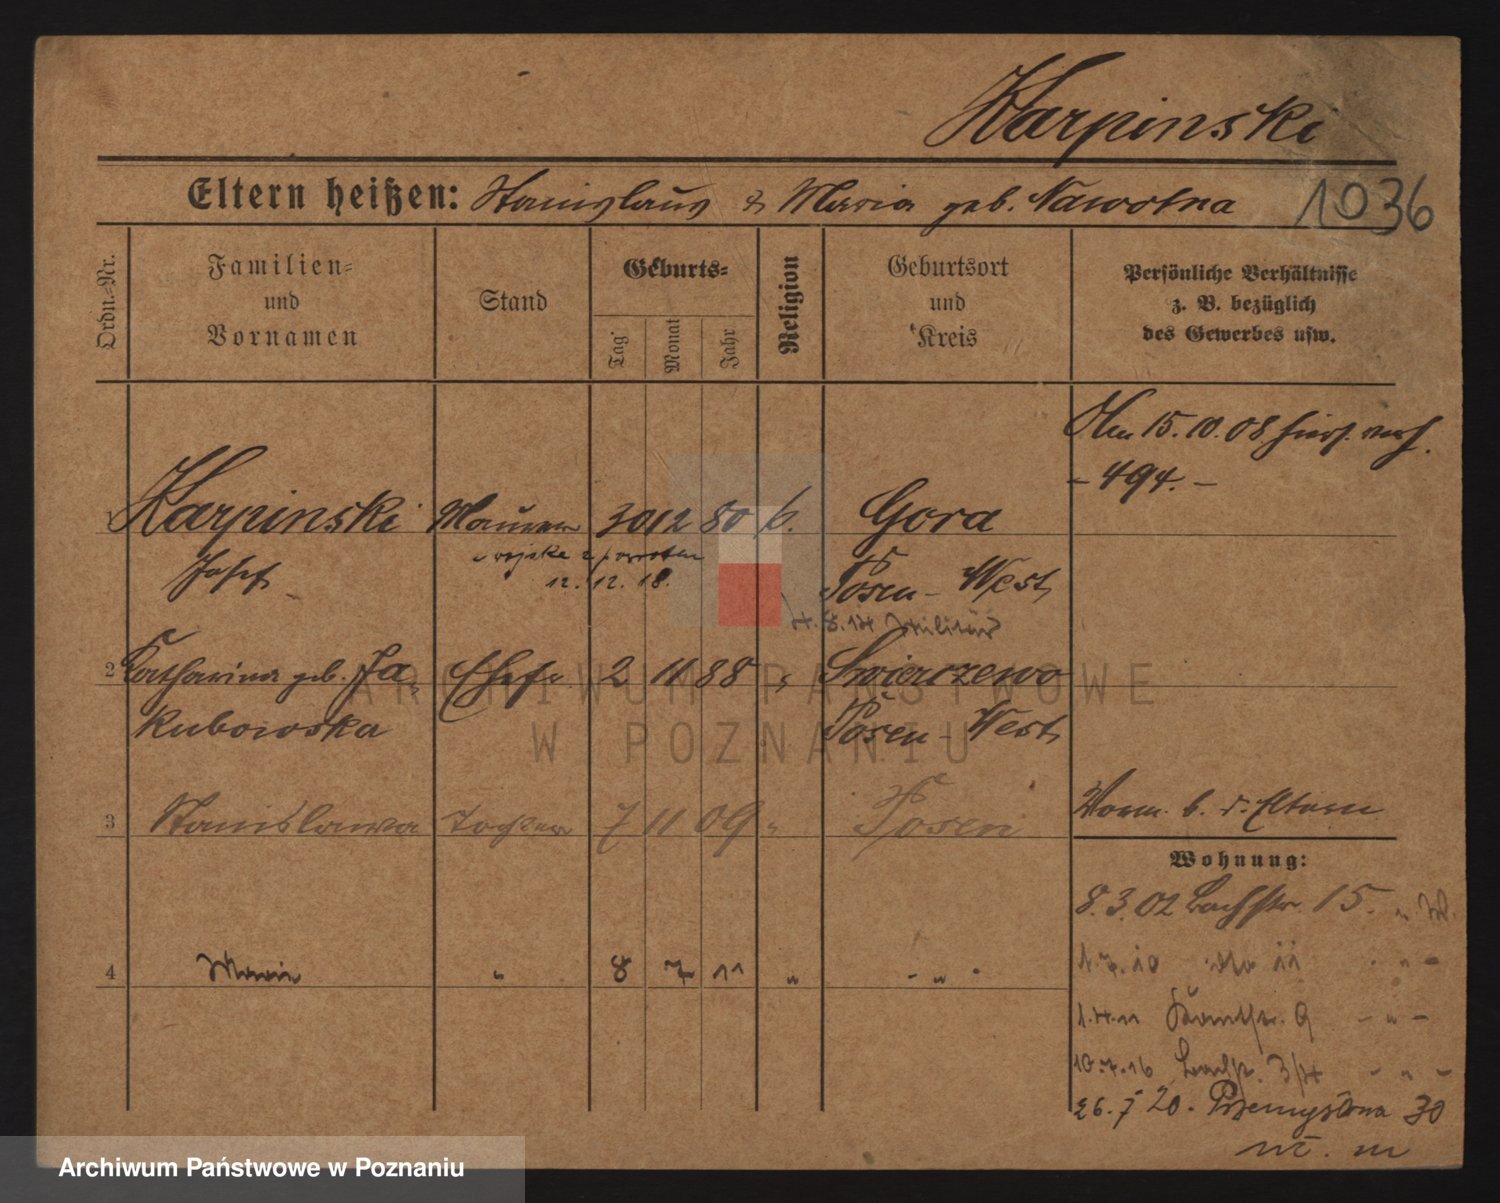 Karpinski
Eltern heißen: Stanislaus & Maria geb. Nawotna
1036
Ordn.-Nr.
Familien-
und
Vornamen
Stand
Geburts-
Tag
Monat
Jahr
Religion
Geburtsort
und
Kreis
Persönliche Verhältnisse
z. B. bezüglich
des Gewerbes usw.
Am 15.10.08 hier verh.
- 494. -
1 Karpinski Maurer 30 12 80 k. Gora
Josef
Posen - West
12. 12. 18.
4.8.14 Militär
2 Katharina geb. Ja- Ehefr. 2 11 88 " Swierczewo
kubowska Posen - West
3 Stanislawa Tochter 7 11 09 " Posen
Worm. b. d. Eltern
Wohnung:
8.3.02 Bachstr. 15. " W.
4 Maria " 8 7 11 " - " -
1.7.10 dto 11 - " -
1.4.11 9 - " -
10.7.16 Bachstr. - " -
26.7 20. Przemysłowa 30
ARCHIWUM PAŃSTWOWE
W POZNANIU
Archiwum Państwowe w Poznaniu